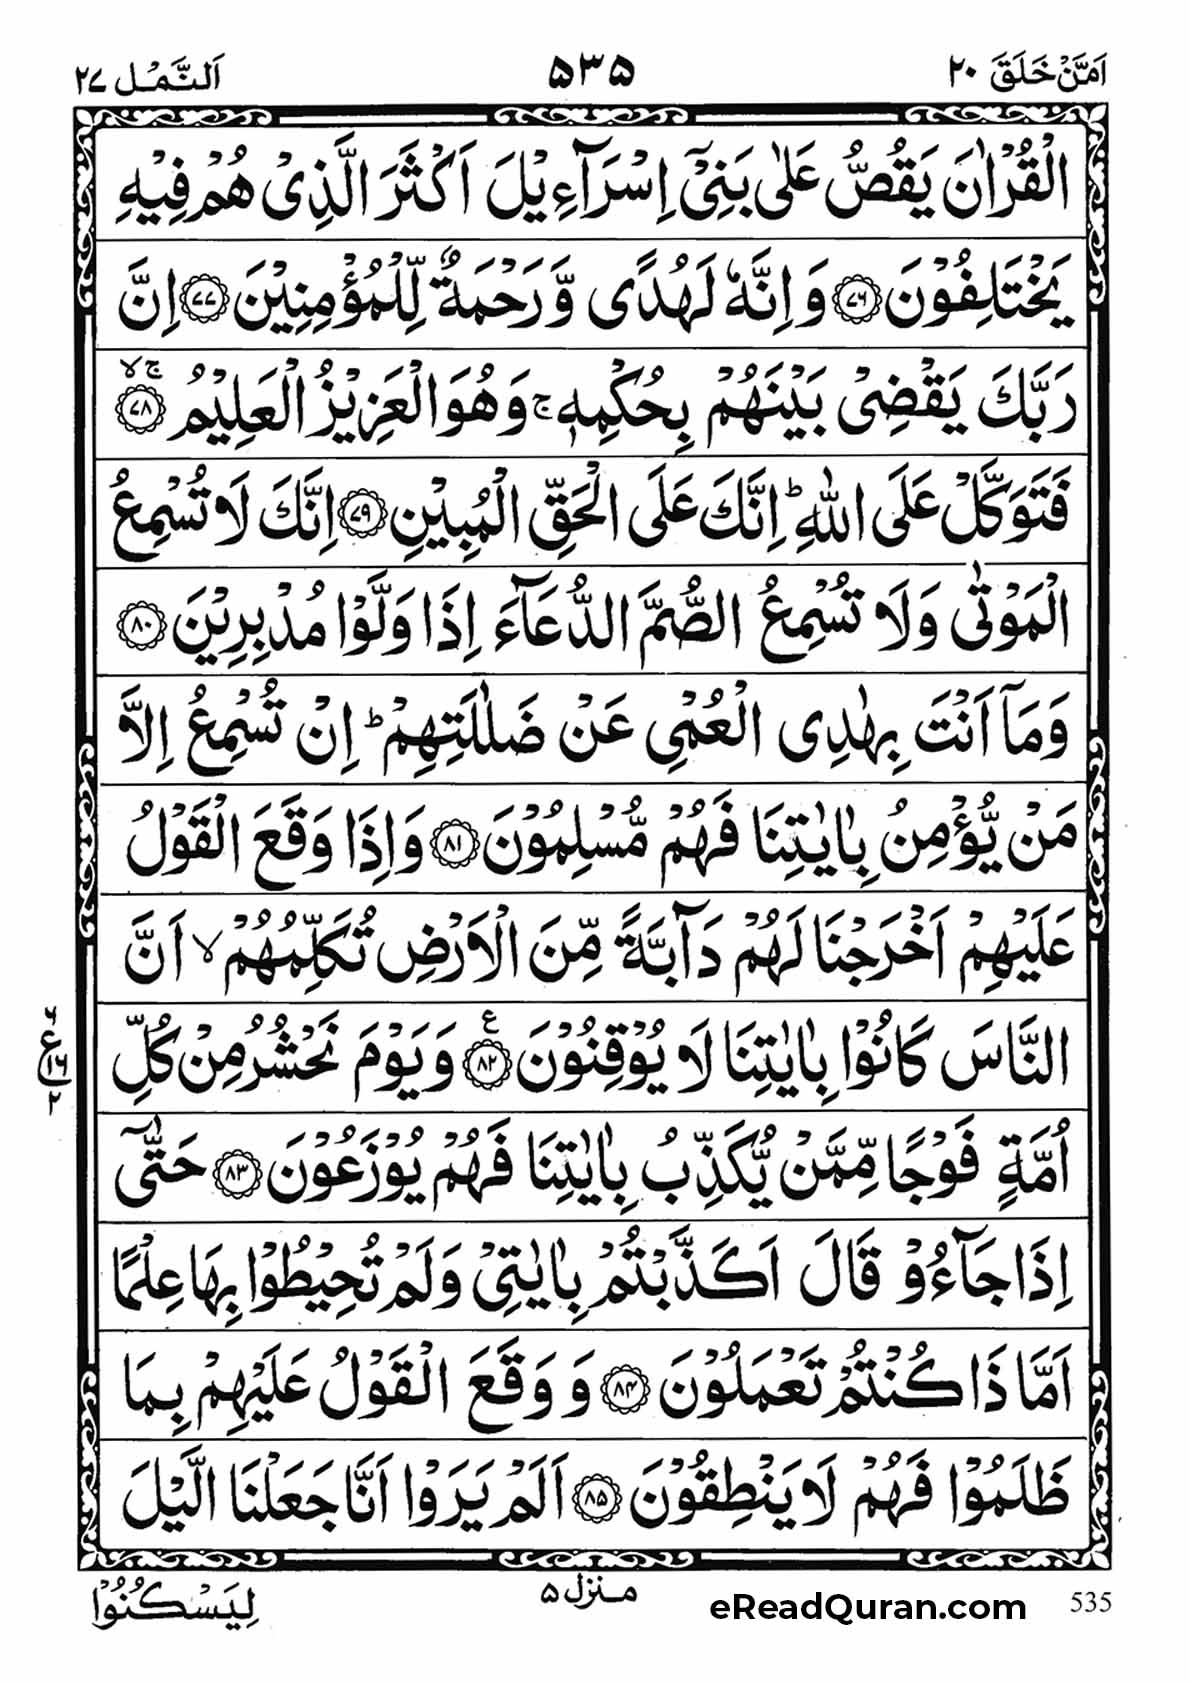 اَمَّنْ خَلَقَ ٢٠ ۵۳۵ اَلنَّمْل ٢٧
الْقُرْاٰنَ يَقُصُّ عَلٰى بَنِيْۤ اِسْرَآءِيْلَ اَكْثَرَ الَّذِيْ هُمْ فِيْهِ
يَخْتَلِفُوْنَ ﴿۷۶﴾ وَ اِنَّهٗ لَهُدًى وَّ رَحْمَةٌ لِّلْمُؤْمِنِيْنَ ﴿۷۷﴾ اِنَّ
رَبَّكَ يَقْضِيْ بَيْنَهُمْ بِحُكْمِهٖ ۚ وَ هُوَ الْعَزِيْزُ الْعَلِيْمُ ﴿۷۸﴾ ج لا
فَتَوَكَّلْ عَلَى اللّٰهِ ؕ اِنَّكَ عَلَى الْحَقِّ الْمُبِيْنِ ﴿۷۹﴾ اِنَّكَ لَا تُسْمِعُ
الْمَوْتٰى وَ لَا تُسْمِعُ الصُّمَّ الدُّعَآءَ اِذَا وَلَّوْا مُدْبِرِيْنَ ﴿۸۰﴾
وَ مَاۤ اَنْتَ بِهٰدِي الْعُمْيِ عَنْ ضَلٰلَتِهِمْ ؕ اِنْ تُسْمِعُ اِلَّا
مَنْ يُّؤْمِنُ بِاٰيٰتِنَا فَهُمْ مُّسْلِمُوْنَ ﴿۸۱﴾ وَ اِذَا وَقَعَ الْقَوْلُ
عَلَيْهِمْ اَخْرَجْنَا لَهُمْ دَآبَّةً مِّنَ الْاَرْضِ تُكَلِّمُهُمْ ۙ اَنَّ
النَّاسَ كَانُوْا بِاٰيٰتِنَا لَا يُوْقِنُوْنَ ﴿۸۲﴾ ع وَ يَوْمَ نَحْشُرُ مِنْ كُلِّ
۶ ع ١٦ ٢
اُمَّةٍ فَوْجًا مِّمَّنْ يُّكَذِّبُ بِاٰيٰتِنَا فَهُمْ يُوْزَعُوْنَ ﴿۸۳﴾ حَتّٰۤى
اِذَا جَآءُوْ قَالَ اَكَذَّبْتُمْ بِاٰيٰتِيْ وَ لَمْ تُحِيْطُوْا بِهَا عِلْمًا
اَمَّا ذَا كُنْتُمْ تَعْمَلُوْنَ ﴿۸۴﴾ وَ وَقَعَ الْقَوْلُ عَلَيْهِمْ بِمَا
ظَلَمُوْا فَهُمْ لَا يَنْطِقُوْنَ ﴿۸۵﴾ اَلَمْ يَرَوْا اَنَّا جَعَلْنَا الَّيْلَ
لِيَسْكُنُوْا
منزل ۵
eReadQuran.com
535